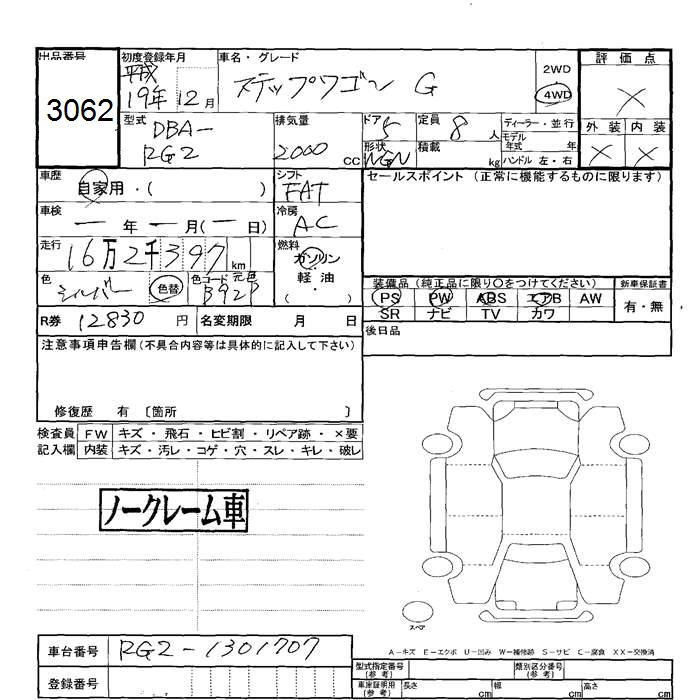 出品番号
3062
初度登録年月
平成
19年 12月
車名・グレード
ステップワゴン G
2WD
4WD
評価点
X
外装 内装
X X
型式
DBA-
RG2
排気量
2000 cc
ドア 5
形状 WGN
定員 8 人
積載 kg
ディーラー・並行
モデル年式 年
ハンドル 左・右
車歴
自家用・( )
シフト
FAT
セールスポイント (正常に機能するものに限ります)
車検
ー 年 ー 月(ー 日)
冷房
AC
走行
16万2千397 km
燃料
ガソリン
軽油
・( )
色
シルバー
色替
色コード 元色
装備品(純正品に限り○をつけてください)
新車保証書
PS PW ABS エアB AW
有・無
SR ナビ TV カワ
R券 12830 円
名変期限 月 日
後日品
注意事項申告欄(不具合内容等は具体的に記入して下さい)
修復歴 有 〔箇所 〕
検査員 FW キズ・飛石・ヒビ割・リペア跡・×要
記入欄 内装 キズ・汚レ・コゲ・穴・スレ・キレ・破レ
ノークレーム車
スペア
A－キズ E－エクボ U－凹み W－補修跡 S－サビ C－腐食 XX－交換済
車台番号 RG2-1301707
登録番号
型式指定番号(参考)
類別区分番号(参考)
車庫証明用(参考)
長さ cm
幅 cm
高さ cm